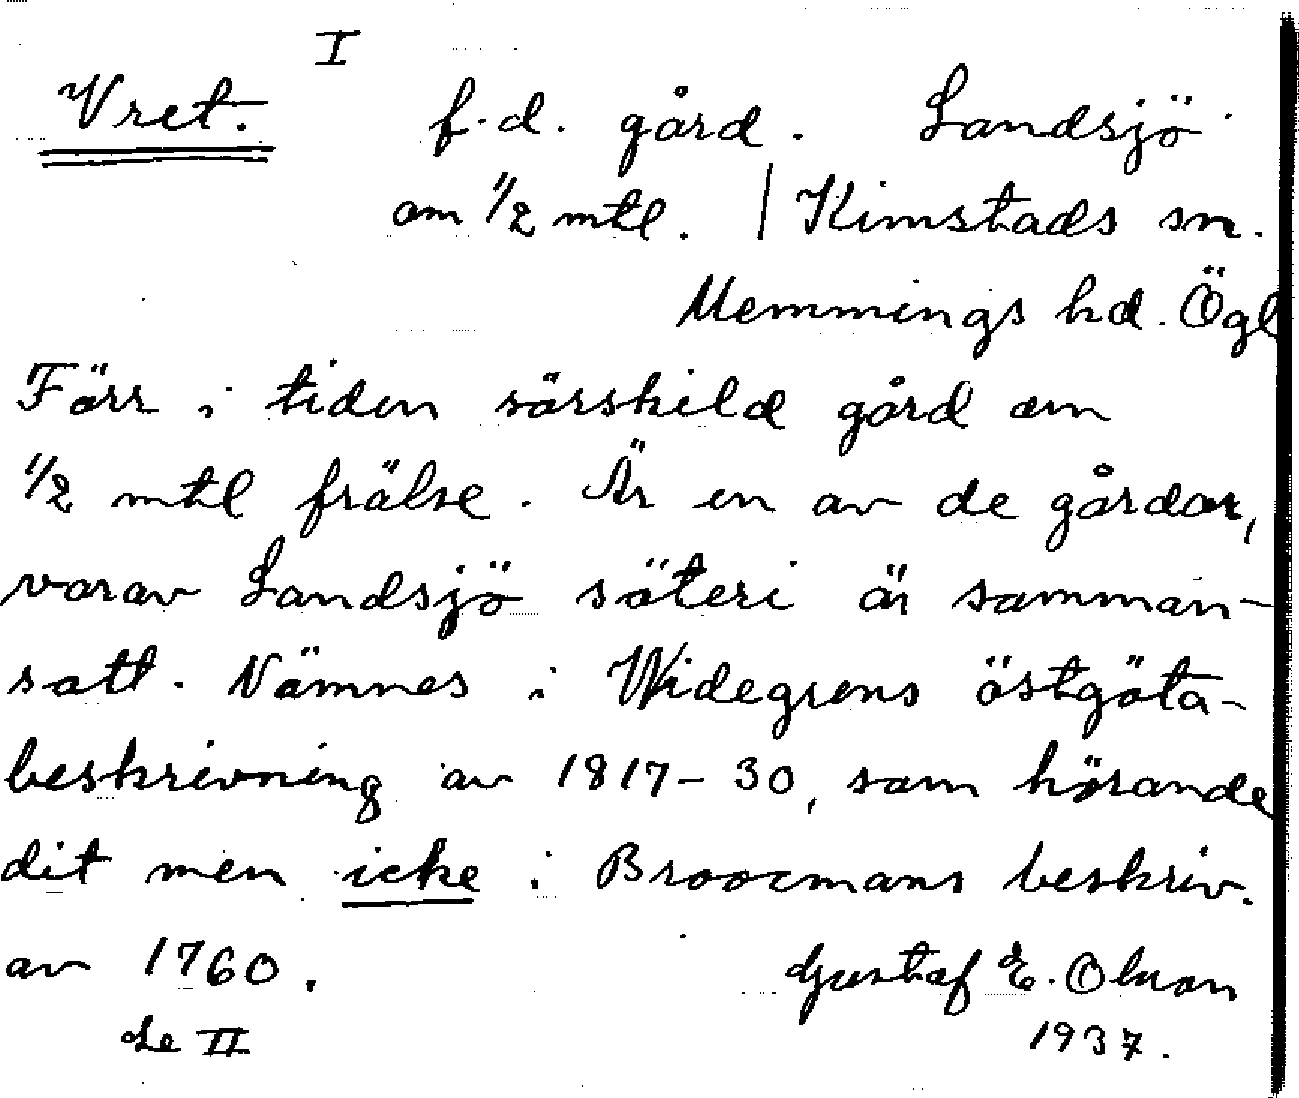 I
Vret. f.d. gård. Landsjö
om 1/2 mtl. | Kimstads sn.
Memmings hd. Ögl
Förr i tiden särskild gård om
1/2 mtl frälse. Är en av de gårdar,
varav Landsjö säteri är samman-
satt. Nämnes i Widegrens östgöta-
beskrivning av 1817-30, som hörande
dit men icke i Broocmans beskriv.
av 1760. Gustaf E. Olsson
Se II 1937.